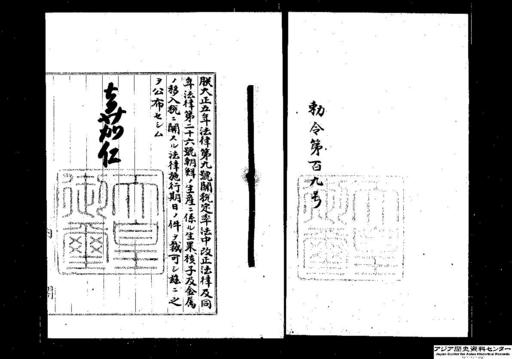 勅令第百九号
朕大正五年法律第九號關税定率法中改正法律及同
年法律第二十六號朝鮮ノ生産ニ係ル生果核子及金属
ノ移入税ニ關スル法律施行期日ノ件ヲ裁可シ茲ニ之
ヲ公布セシム
嘉仁
天皇
御璽
内閣
アジア歴史資料センター
Japan Center for Asian Historical Records